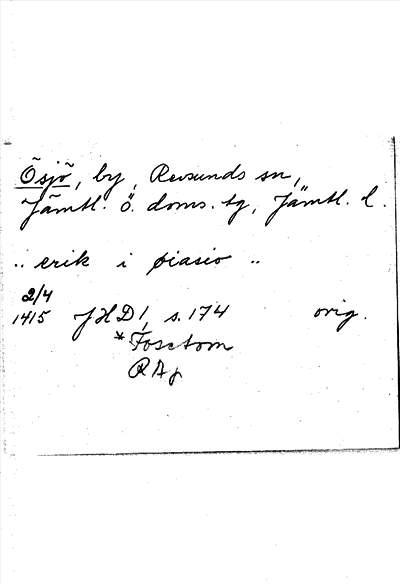 Ösjö, by, Revsunds sn,
Jämtl. ö. doms. tg, Jämtl. l.
.. erik i øiasio ..
2/4
1415 JHD 1, s. 174 orig.
* Fosetom
RAp